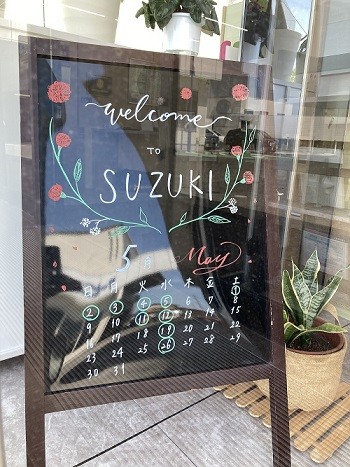 welcome
TO
SUZUKI
5月 May
日 月 火 水 木 金 土
1
2 3 4 5 6 7 8
9 10 11 12 13 14 15
16 17 18 19 20 21 22
23 24 25 26 27 28 29
30 31